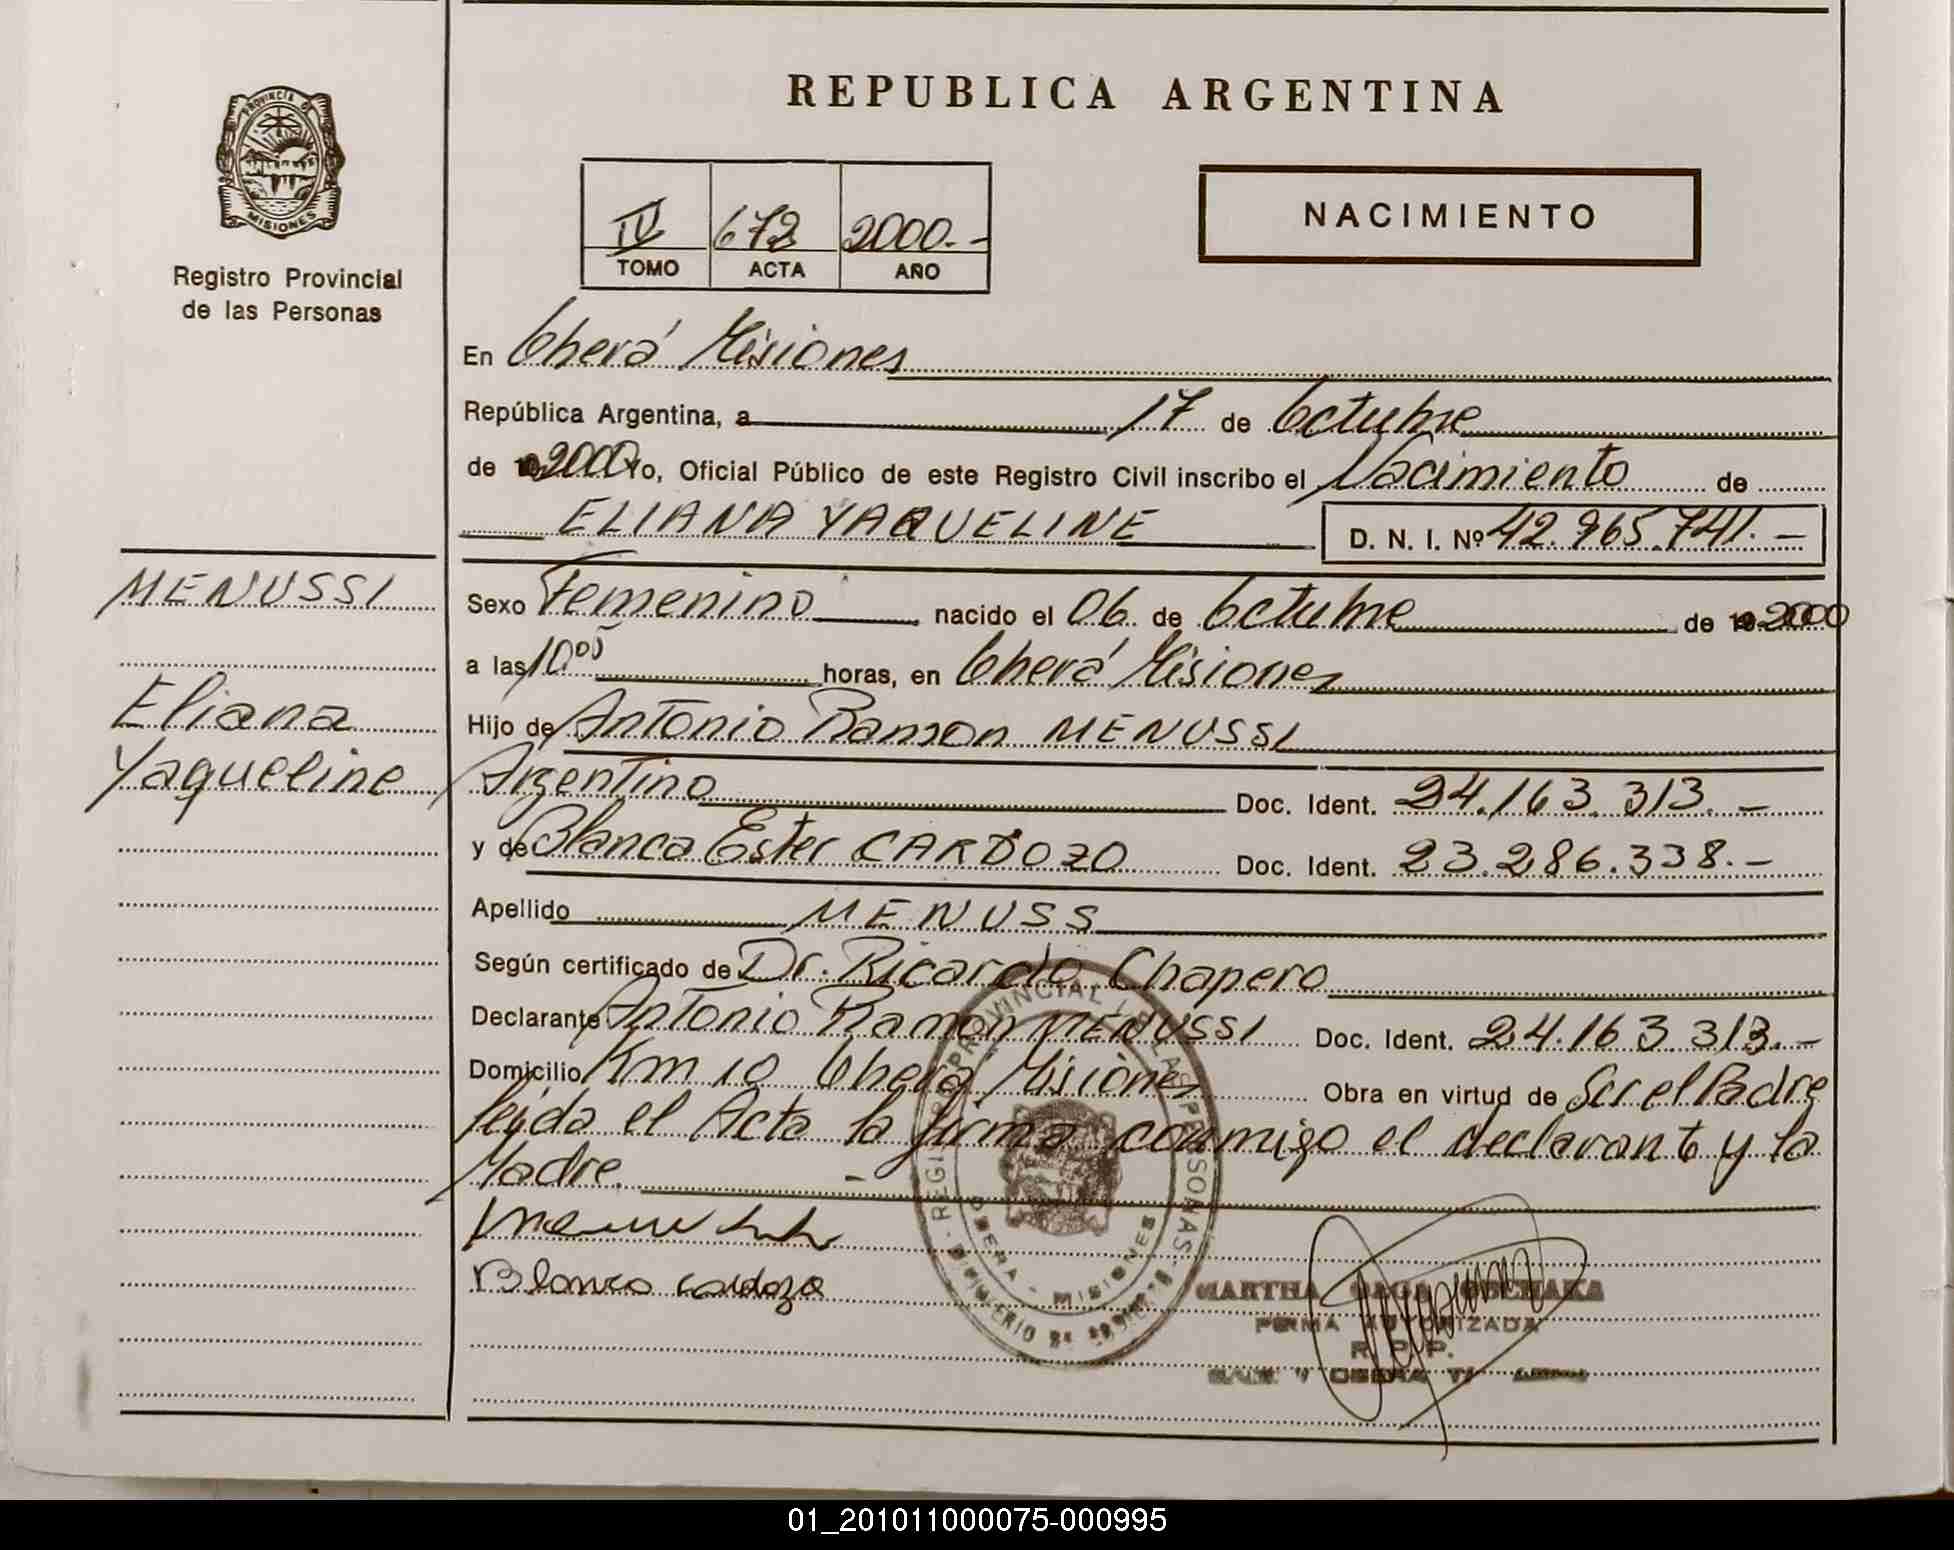 REPUBLICA ARGENTINA
PROVINCIA DE
MISIONES
Registro Provincial
de las Personas
NACIMIENTO
IV 672 2000.-
TOMO ACTA AÑO
En Oberá Misiones
República Argentina, a 17 de Octubre
de 2000 Yo, Oficial Público de este Registro Civil inscribo el Nacimiento de
ELIANA YAQUELINE D. N. I. Nº 42.965.741.-
MENUSSI
Eliana
Yaqueline
Sexo Femenino nacido el 06 de Octubre de 2000
a las 10:00 horas, en Oberá Misiones
Hijo de Antonio Ramon MENUSSI
Argentino Doc. Ident. 24.163.313.-
y de Blanca Ester CARDOZO Doc. Ident. 23.286.338.-
Apellido MENUSS
Según certificado de Dr. Ricardo Chapero
Declarante Antonio Ramon MENUSSI Doc. Ident. 24.163.313.-
Domicilio Km 10 Oberá Misiones Obra en virtud de Ser el Padre
leída el Acta la firma conmigo el declarante y la
Madre.
Blanca Cardozo
REGISTRO PROVINCIAL DE LAS PERSONAS
OBERA - MISIONES
MARTHA OLGA
FIRMA AUTORIZADA
R. P. P.
01_201011000075-000995